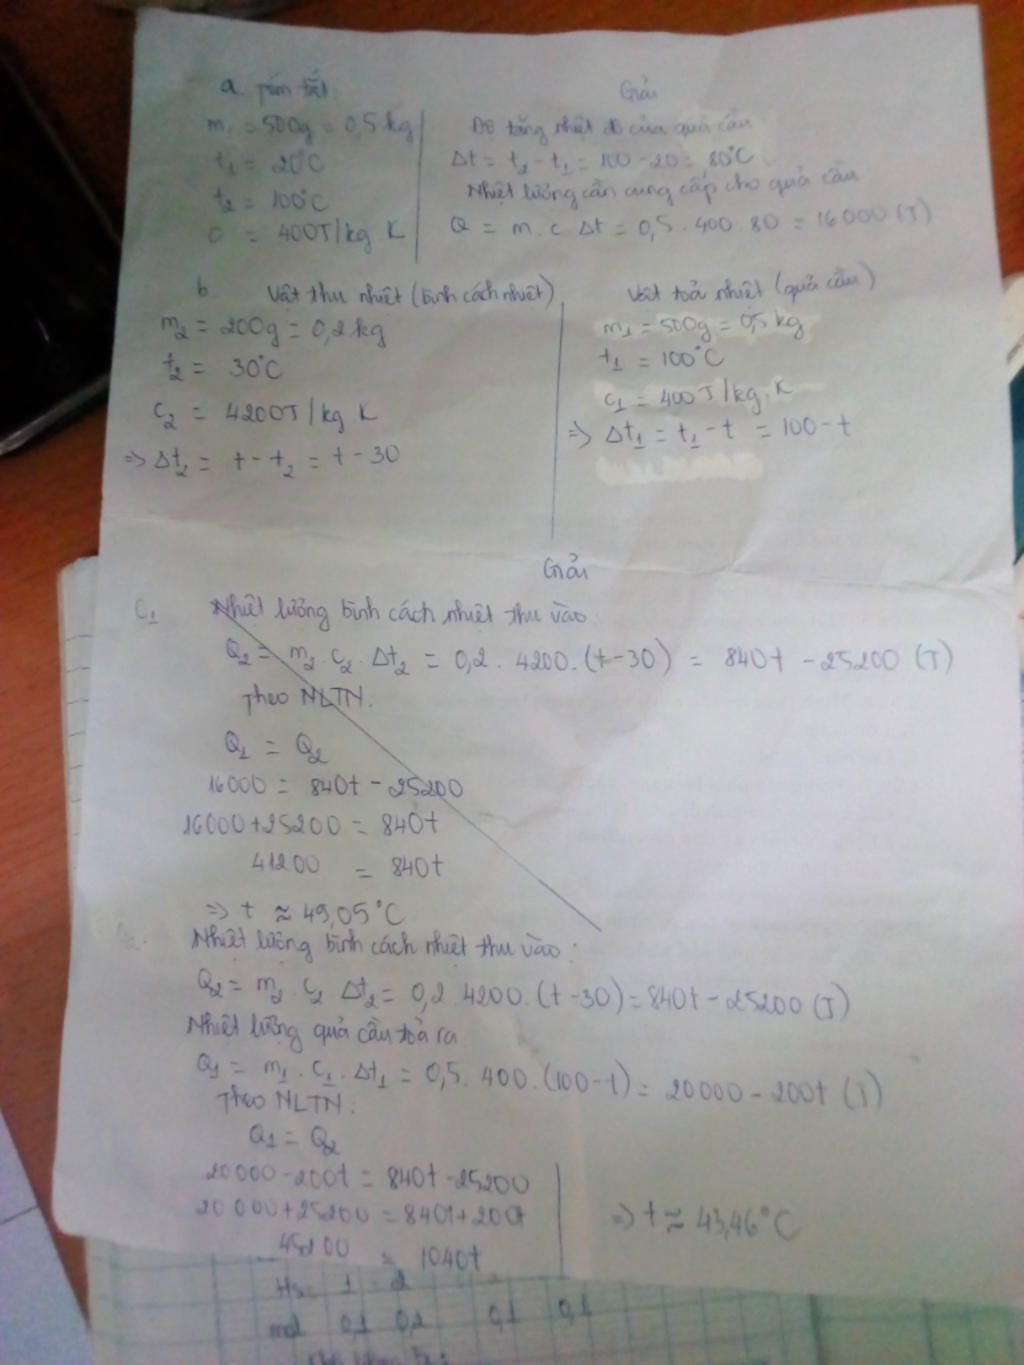 a. Tóm tắt:
m₁ = 500g = 0,5 kg
t₁ = 20°C
t₂ = 100°C
C = 400J/kg K
Giải
Độ tăng nhiệt độ của quả cầu
Δt = t₂ - t₁ = 100 - 20 = 80°C
Nhiệt lượng cần cung cấp cho quả cầu
Q = m . c Δt = 0,5 . 400 . 80 = 16000 (J)
b. Vật thu nhiệt (bình cách nhiệt)
m₂ = 200g = 0,2 kg
t₂ = 30°C
C₂ = 4200J/kg K
=> Δt₂ = t - t₂ = t - 30
Vật toả nhiệt (quả cầu)
m₁ = 500g = 0,5 kg
t₁ = 100°C
C₁ = 400J/kg.K
=> Δt₁ = t₁ - t = 100 - t
Giải
C₁ Nhiệt lượng bình cách nhiệt thu vào:
Q₂ = m₂ . C₂ . Δt₂ = 0,2 . 4200.(t-30) = 840t - 25200 (J)
Theo NLTN:
Q₁ = Q₂
16000 = 840t - 25200
16000 + 25200 = 840t
41200 = 840t
=> t ≈ 49,05°C
Nhiệt lượng bình cách nhiệt thu vào:
Q₂ = m₂ . C₂ Δt₂ = 0,2 4200.(t-30) = 840t - 25200 (J)
Nhiệt lượng quả cầu toả ra
Q₁ = m₁ . C₁ . Δt₁ = 0,5. 400.(100-t) = 20000 - 200t (J)
Theo NLTN:
Q₁ = Q₂
20000 - 200t = 840t - 25200
20000 + 25200 = 840t + 200t
45200 = 1040t
=> t ≈ 43,46°C
1 2
mol 0,1 0,2 0,1 0,1